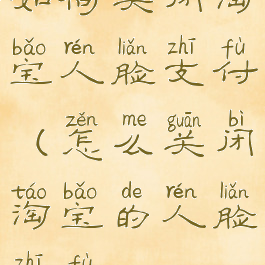 如何关闭淘
bǎo rén liǎn zhī fù
宝人脸支付
zěn me guān bì
（怎么关闭
táo bǎo de rén liǎn
淘宝的人脸
zhī fù